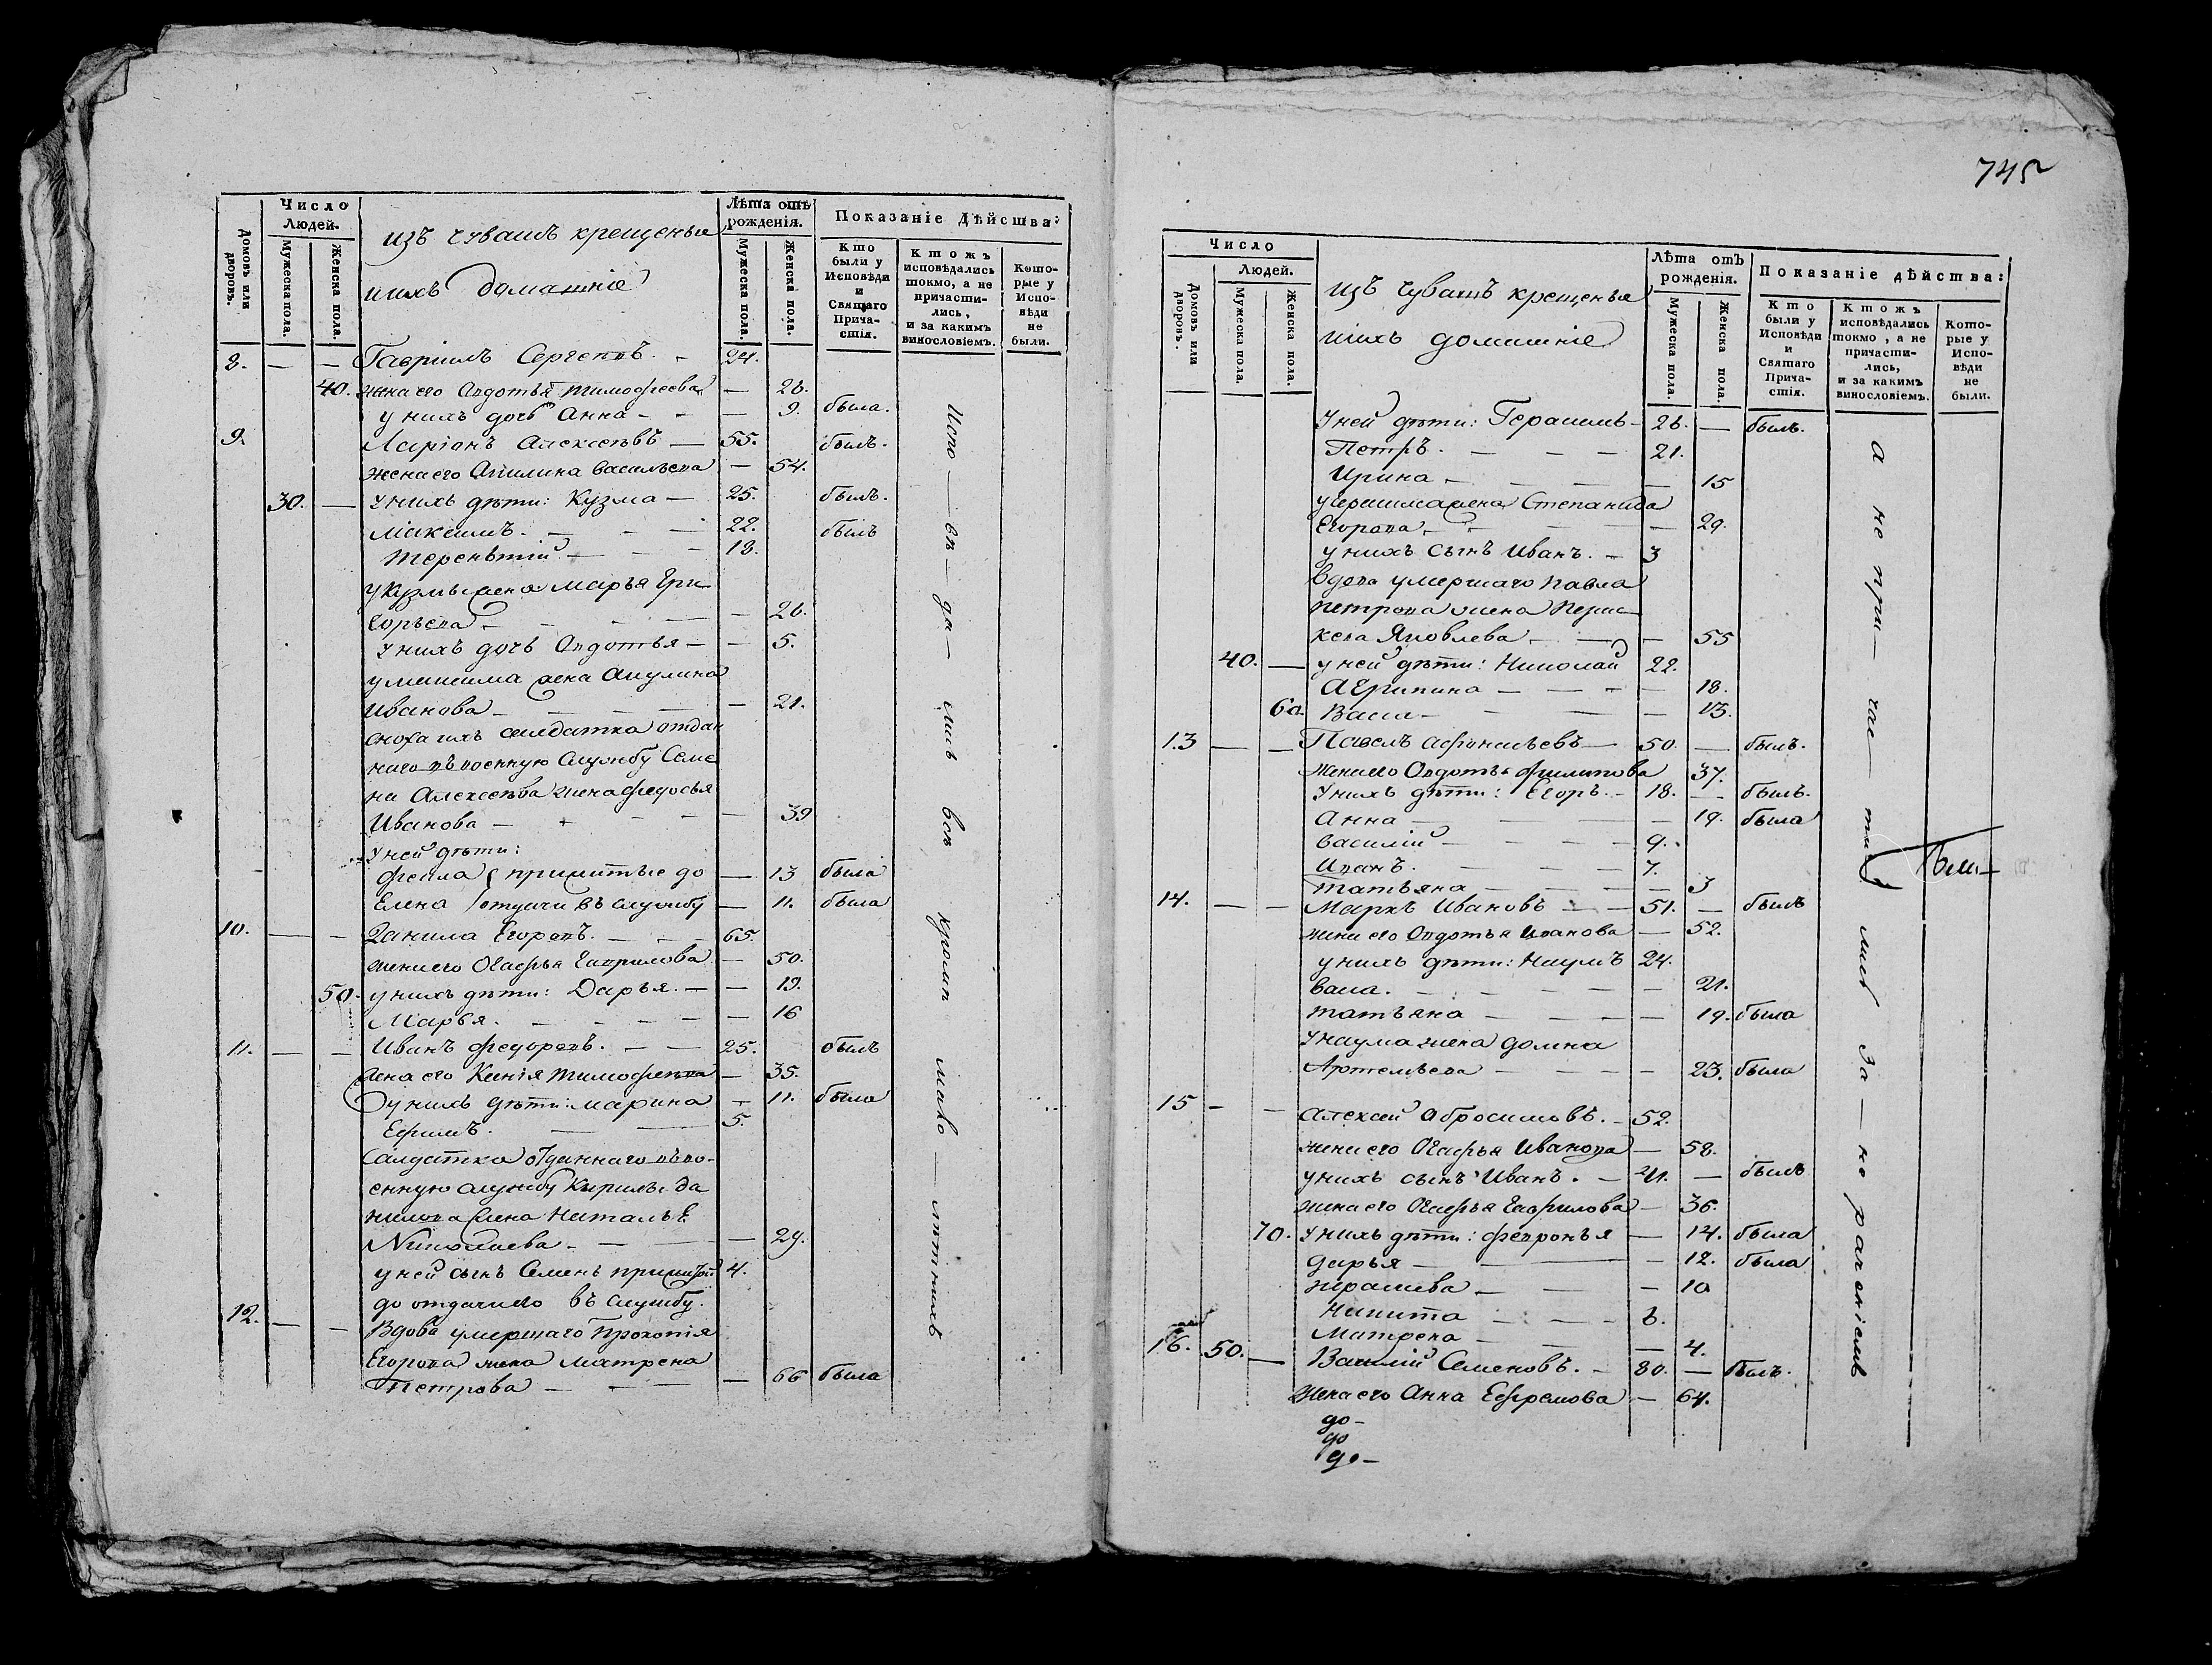 Домовъ или дворовъ.
Число Людей.
Мужеска пола.
Женска пола.
изъ чувашъ крещеные
и ихъ домашніе
Лѣта отъ рожденія.
Мужеска пола.
Женска пола.
Показаніе дѣйства:
Кто были у Исповѣди и Святаго Причастія.
Ктожъ исповѣдались токмо, а не причастились, и за какимъ винословіемъ.
Которые у Исповѣди не были.
8. — — Гавріилъ Сергеевъ. — 24.
40. жена его Авдотья Тимофеева — 26.
у нихъ дочь Анна — — — 9. была.
9. Ларіонъ Алексеевъ — 55. былъ.
жена его Акилина Васильева — 54.
30. — у нихъ дѣти: Кузма — 25. былъ.
Максимъ. — — — 22. былъ
Терентій — — — 18.
у Кузмы жена Марья Гри-
горьева — — — — 26.
у нихъ дочь Авдотья — — 5.
у Максима жена Акулина
Иванова — — — — — 21.
сноха ихъ салдатка отдан
наго въ военную службу Семе
на Алексеева жена Федосья
Иванова — — — — — 39
у ней дѣти:
Фекла прижитые до — 13 была
Елена отдачи въ службу — 11. была
10. — — Данила Егоровъ. — — — 65.
жена его Агафья Гаврилова — 50.
50. у нихъ дѣти: Дарья. — — 19.
Марья. — — — — — 16
11. — — Иванъ Федоровъ. — — 25. былъ
жена его Ксенія Тимофеева — 35.
у нихъ дѣти: Марина — 11. была
Ефимъ. — — 5.
Салдатка отданнаго въ во-
енную службу Кирилы Да
нилова жена Наталья
Николаева — — — — 29.
у ней сынъ Семенъ прижитой 4.
до отдачи его въ службу.
12. — — Вдова умершаго Прокопія
Егорова жена Матрена
Петрова — — — — 66 была
Испо — вѣ — да — лись всѣ кромѣ мало — лѣтныхъ
745
Число
Домовъ или дворовъ.
Людей.
Мужеска пола.
Женска пола.
изъ чувашъ крещеные
и ихъ домашніе
Лѣта отъ рожденія.
Мужеска пола.
Женска пола.
Показаніе дѣйства:
Кто были у Исповѣди и Святаго Причастія.
Ктожъ исповѣдались токмо, а не причастились, и за какимъ винословіемъ.
Которые у Исповѣди не были.
У ней дѣти: Герасимъ — 26. — былъ.
Петръ. — — — 21.
Ирина — — — — — 15
у Герасима жена Степанида
Егорова — — — — 29.
у нихъ сынъ Иванъ. — 3
Вдова умершаго Павла
Петрова жена
Яковлева — — — 55
40. — у ней дѣти: Николай 22.
Агрипина — — — — 18.
60. Васса — — — — 13.
13 — — Павелъ Афонасьевъ — 50. — былъ.
жена его Авдотья Филипова 37.
У нихъ дѣти: Егоръ. — 18. — былъ.
Анна — — — 19. была
Василій — — — — 9.
Иванъ. — — — 7.
Татьяна — — — — 3
14. — — Маркъ Ивановъ — — 51. — былъ
жена его Авдотья Иванова — 52.
у нихъ дѣти: Наумъ 24.
Васса. — — — — — 21.
Татьяна — — — — 19. была
у Наума жена Домна
Артемьева — — — — 23. была
15 — — Алексей Абросимовъ. — 52.
жена его Агафья Иванова — 58.
у нихъ сынъ Иванъ. — 21. — былъ
жена его Агафья Гаврилова — 36.
70. У нихъ дѣти: Февронья — 14. была
Дарья — — — 12. была
— — — 10
Никита — — — 6.
Матрена — — — 4.
16. 50. — Василій Семеновъ. — 80. — былъ.
жена его Анна Ефремова — 64.
а не при — час — ти — лись за — не раченіемъ
до —
до
до —